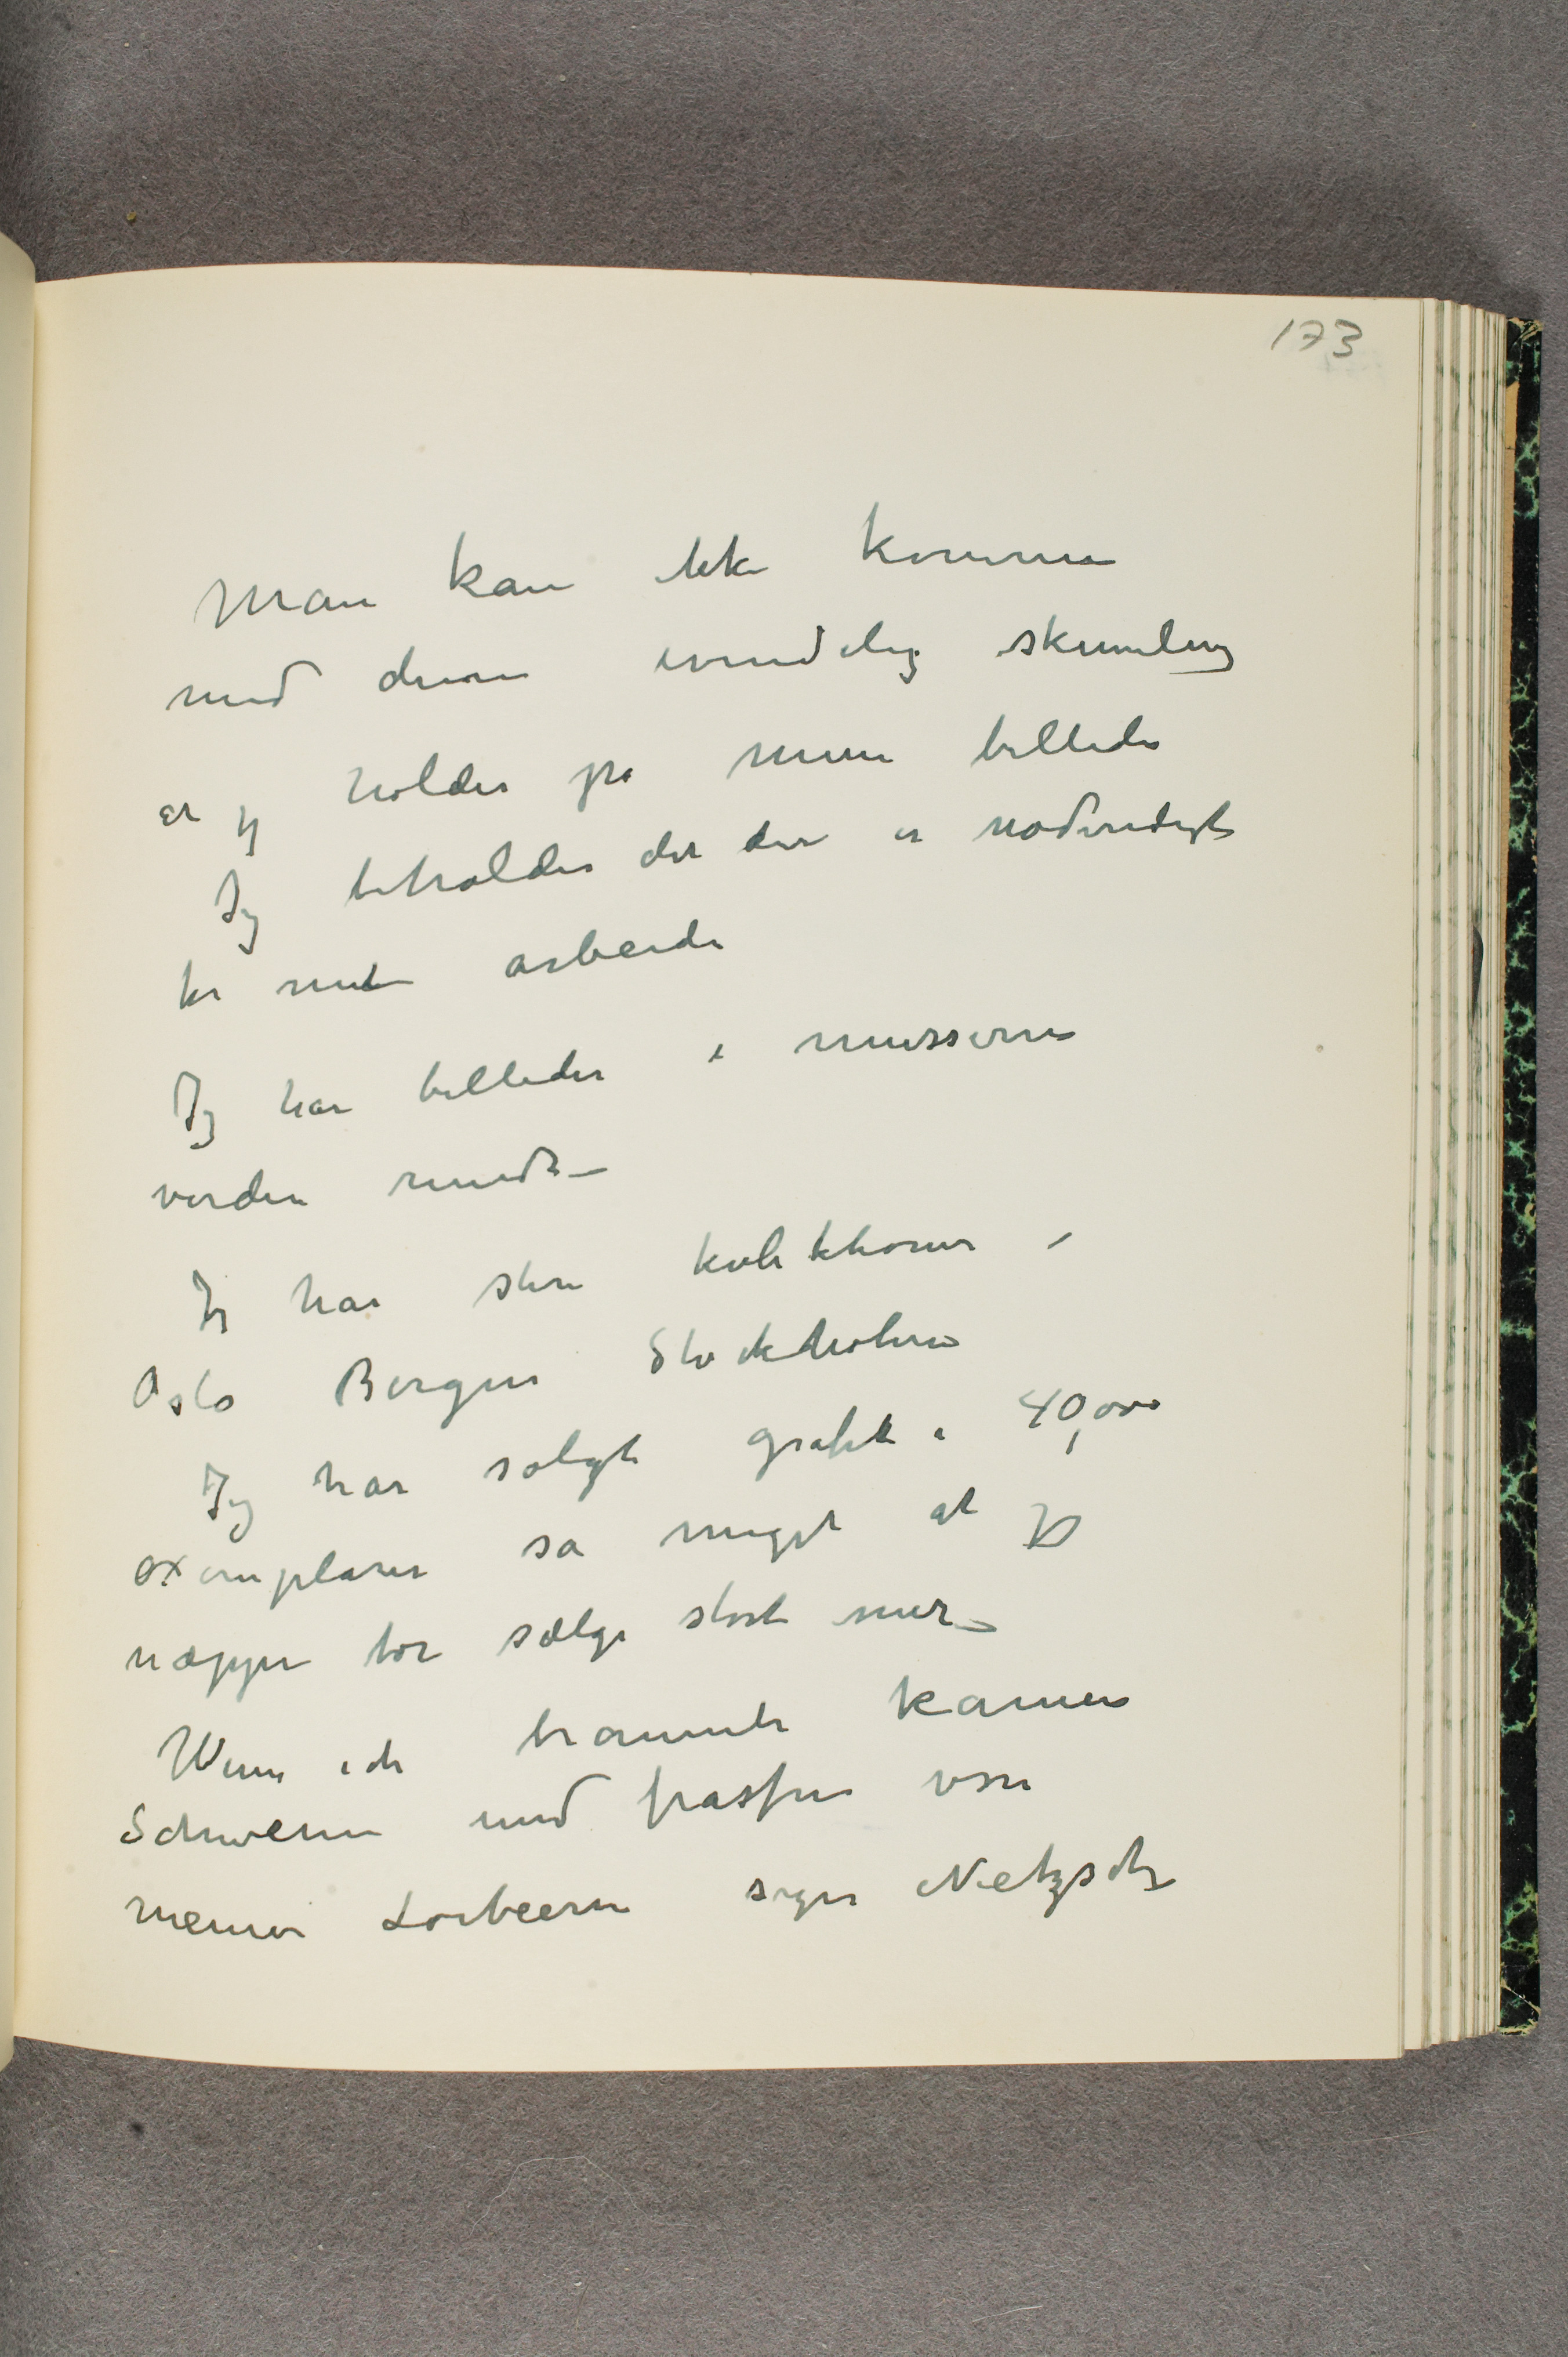 173
Man kan ikke komme
med denne evindelig skumling
at jeg holder på mine billeder
Jeg beholder det der er nødvendigt
for mit arbeide
Jeg har billeder i musserne
verden rundt –
Jeg har store kollektioner i
Oslo Bergen Stockholm
Jeg har solgt grafik i 40,000
exemplarer så meget at jeg
næppe tør sælge stort mer –
Wenn ich traumte kamen
Schweine und frasfen von
meinen Lorbeern siger Nietzsche